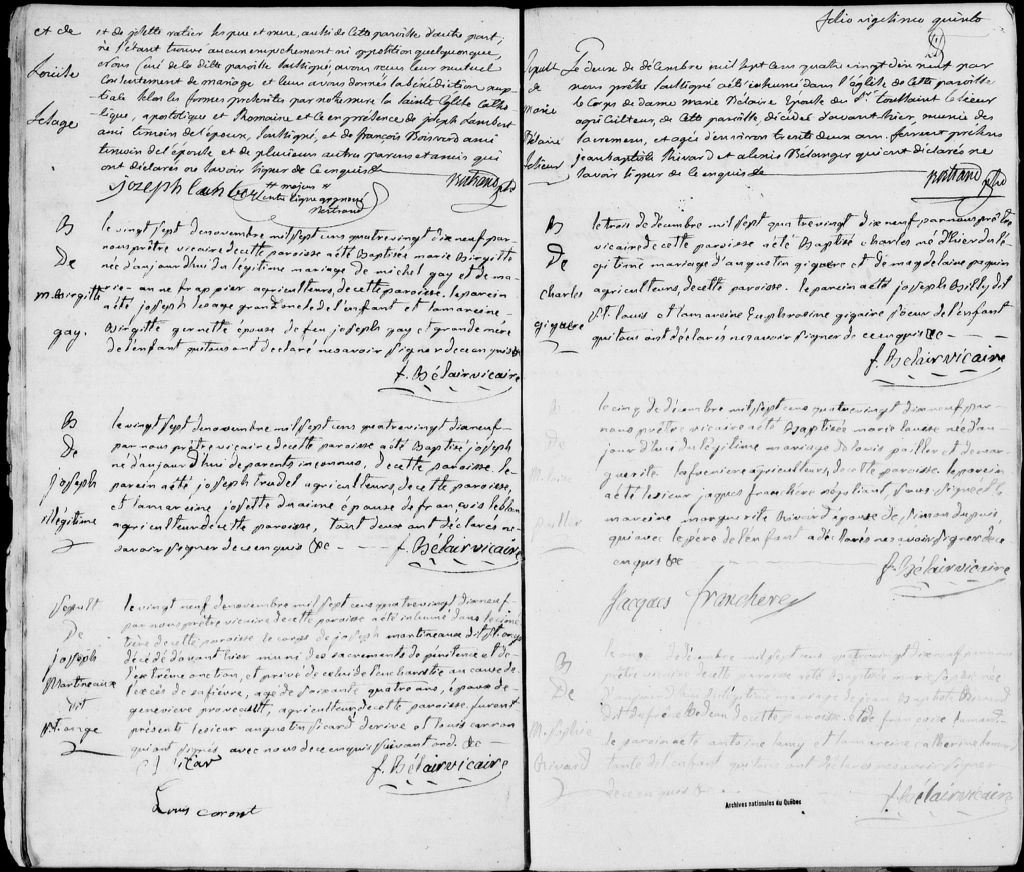 et de
Louise
Lesage
et de josette ratier ses pere et mere, aussi de cette paroisse d'autre part;
ne s'étant trouvé aucun empechement ni opposition quelquonque,
nous Curé de la dite paroisse soussigné, avons reçu leur mutuel
Consentement de mariage et leur avons donné la bénédiction nup-
tiale selon les formes prescrites par notre mere la Sainte Eglise Catho-
lique, apostolique et Romaine et ce en présence de joseph Lambert
ami temoin de l'époux, soussigné, et de françois Boisverd ami
temoin de l'épouse et de plusieurs autres parens et amis qui
ont déclarés ne savoir signer de ce enquis de
jozeph lanber
Bertrand ptre
B
De
M. Birgitte
gay.
le vingt sept de novembre mil sept cens quatre vingt dix neuf par-
nous prêtre vicaire de cette paroisse a été Baptisée marie Birgitte
née d'aujourd'hui du légitime mariage de michel gay et de ma-
rie-anne frappier agriculteurs, de cette paroisse. le parein
a été joseph lesage grand oncle de l'enfant et la mareine-
Birgitte gernette épouse de feu joseph gay et grande mère
de l'enfant qui tous ont déclaré ne savoir signer de ce enquis &c
f. Bélair vicaire
B
De
joseph
illégitime
le vingt sept de novembre mil sept cens quatre vingt dix neuf-
par nous prêtre vicaire de cette paroisse a été Baptisé joseph
né d'aujourd'hui de parents inconnus, de cette paroisse. le-
parein a été joseph trudel agriculteurs, de cette paroisse,
et la mareine josette duaime épouse de françois leblan
agriculteur de cette paroisse, tout deux ont déclarés ne-
savoir signer de ce enquis &c - - - f. Bélair vicaire
Sepult
De
joseph
Martineaux
dit
St. onge
le vingt neuf de novembre mil sept cens quatre vingt dix neuf
par nous prêtre vicaire de cette paroisse a été inhumé dans le cime
tière de cette paroisse le corps de joseph martineaux dit St. onge
décédé d'avant hier muni des sacrements de pénitence et de
l'extrême onction, et privé de celui de l'eucharistie au cause de
l'excès de sa fièvre, agé de soixante quatre ans, époux de-
genevieve provencult, agriculteur, de cette paroisse. furent
présents le sieur augustin sicard derive et louis carron
qui ont signés avec nous de ce enquis suivant ord. &c -
f. Bélair vicaire
Louis caront
folio vigesimo quinto
Sepult
de
Marie
Bélaire
Lesieur
Le deux de décembre mil sept cens quatre vingt dix neuf par
nous prêtre soussigné a été inhumé dans l'église de cette paroisse
le Corps de dame Marie Bélaire Epouse du Sr. Toussaint Lesieur
agriculteur, de cette paroisse, décédée d'avant hier, munie des
sacremens, et agée d'environ trente deux ans. furent présens
jean baptiste Rivard et alexis Bélanger qui ont déclarés ne
savoir signer de ce enquis de
Bertrand ptre
B
De
Charles
giguere
le trois de décembre mil sept cens quatre vingt dix neuf par nous prêtre
vicaire de cette paroisse a été Baptisé charles né d'hier du lé-
gitime mariage d'augustin giguere et de magdelaine paquin
agriculteurs, de cette paroisse. le parein a été joseph Billy dit
St. louis et la mareine Euphrosine giguire soeur de l'enfant
qui tous ont déclarés ne savoir signer de ce enquis &c -
f. Bélair vicaire
B
De
M. louise
pailler
le cinq de décembre mil sept cens quatre vingt dix neuf par-
nous prêtre vicaire a été Baptisée marie louise née d'au-
jourd'hui du légitime mariage de louis pailler et de mar-
guerite lafreniere agriculteurs, de cette paroisse. le parein
a été le sieur jaques franchère négotiant sous-signé et la
mareine marguerite Rivard épouse de Simon dupuis,
qui avec le père de l'enfant a déclarés ne savoir signer de ce
enquis &c
f. Bélair vicaire
Jacques franchere
B
De
M. Sophie
Rivard
le onze de décembre mil sept cens quatre vingt dix neuf par nous
prêtre vicaire de cette paroisse a été Baptisée marie sophie née
d'aujourd'hui du légitime mariage de jean Baptiste Rivard
le parein a été antoine lamy et la mareine catherine
tante de l'enfant qui tous ont déclarés ne savoir signer
de ce enquis &c
f. Bélair vicaire
Archives nationales du Québec